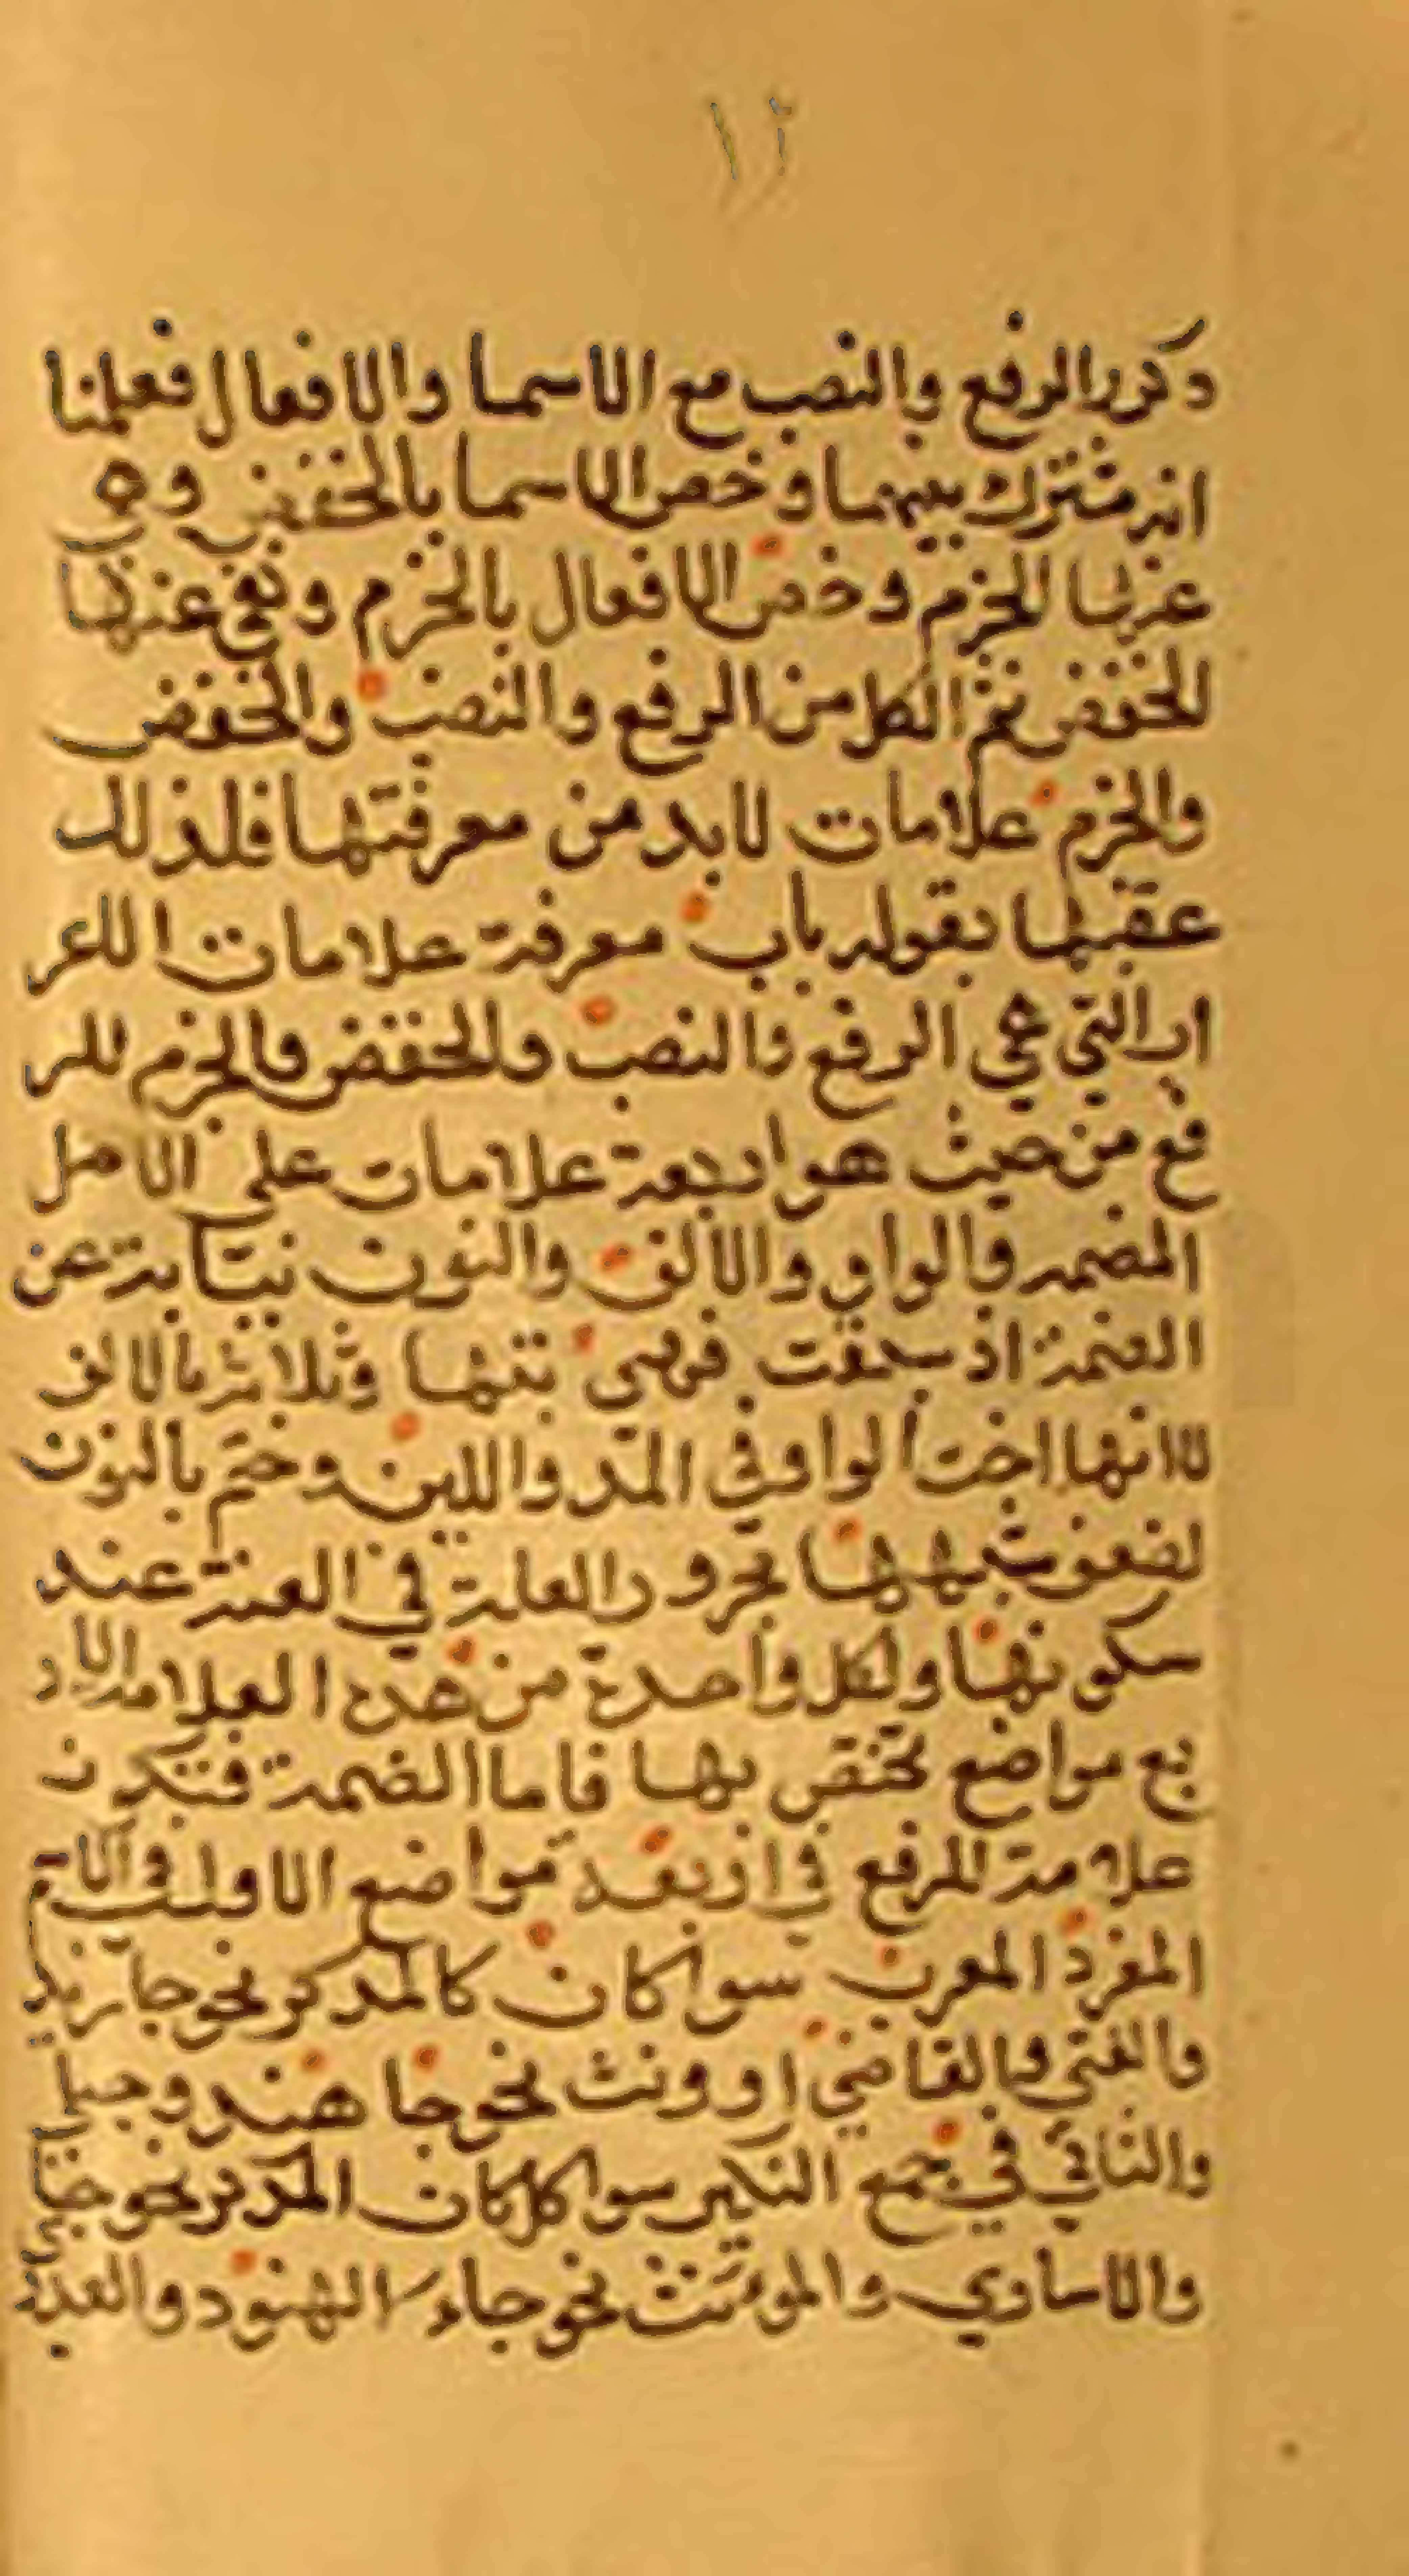 ١٢
ذكر الرفع والنصب مع الاسما والافعال فعلمنا
انه مشترك بينهما وخص الاسما بالخفض و
عنها الجزم وخص الافعال بالجزم ونفي عنها
الخفض ثم لكل من الرفع والنصب والخفض
والجزم علامات لابد من معرفتها فلذلك
عقبها بقوله باب معرفة علامات الاعر
اب التي هي الرفع والنصب والخفض والجزم للر
فع من حيث هو اربعة علامات على الاصل
الضمه والواو والالف والنون نيابة عن
الضمة اذ سخقت فهي بنتها وثلاثه بالالف
لانها اخت الواو في المد واللين وختم بالنون
لضعف شبهها بحروف العلة في الغنة عند
سكونها ولكل واحدة من هذه العلامات ار
بع مواضع تختص بها فاما الضمة فتكون
علامة للرفع في اربعة مواضع الاول في الاسم
المفرد المعرب سوا كان كالمذكر نحو جا زيد
والفتى والقاضي او ونث نحو جا هند وحبلى
والثاني في جمع التكير سوا كان المذكر نحو جا
والاساري والمونث نحو جاء الهنود والعذ